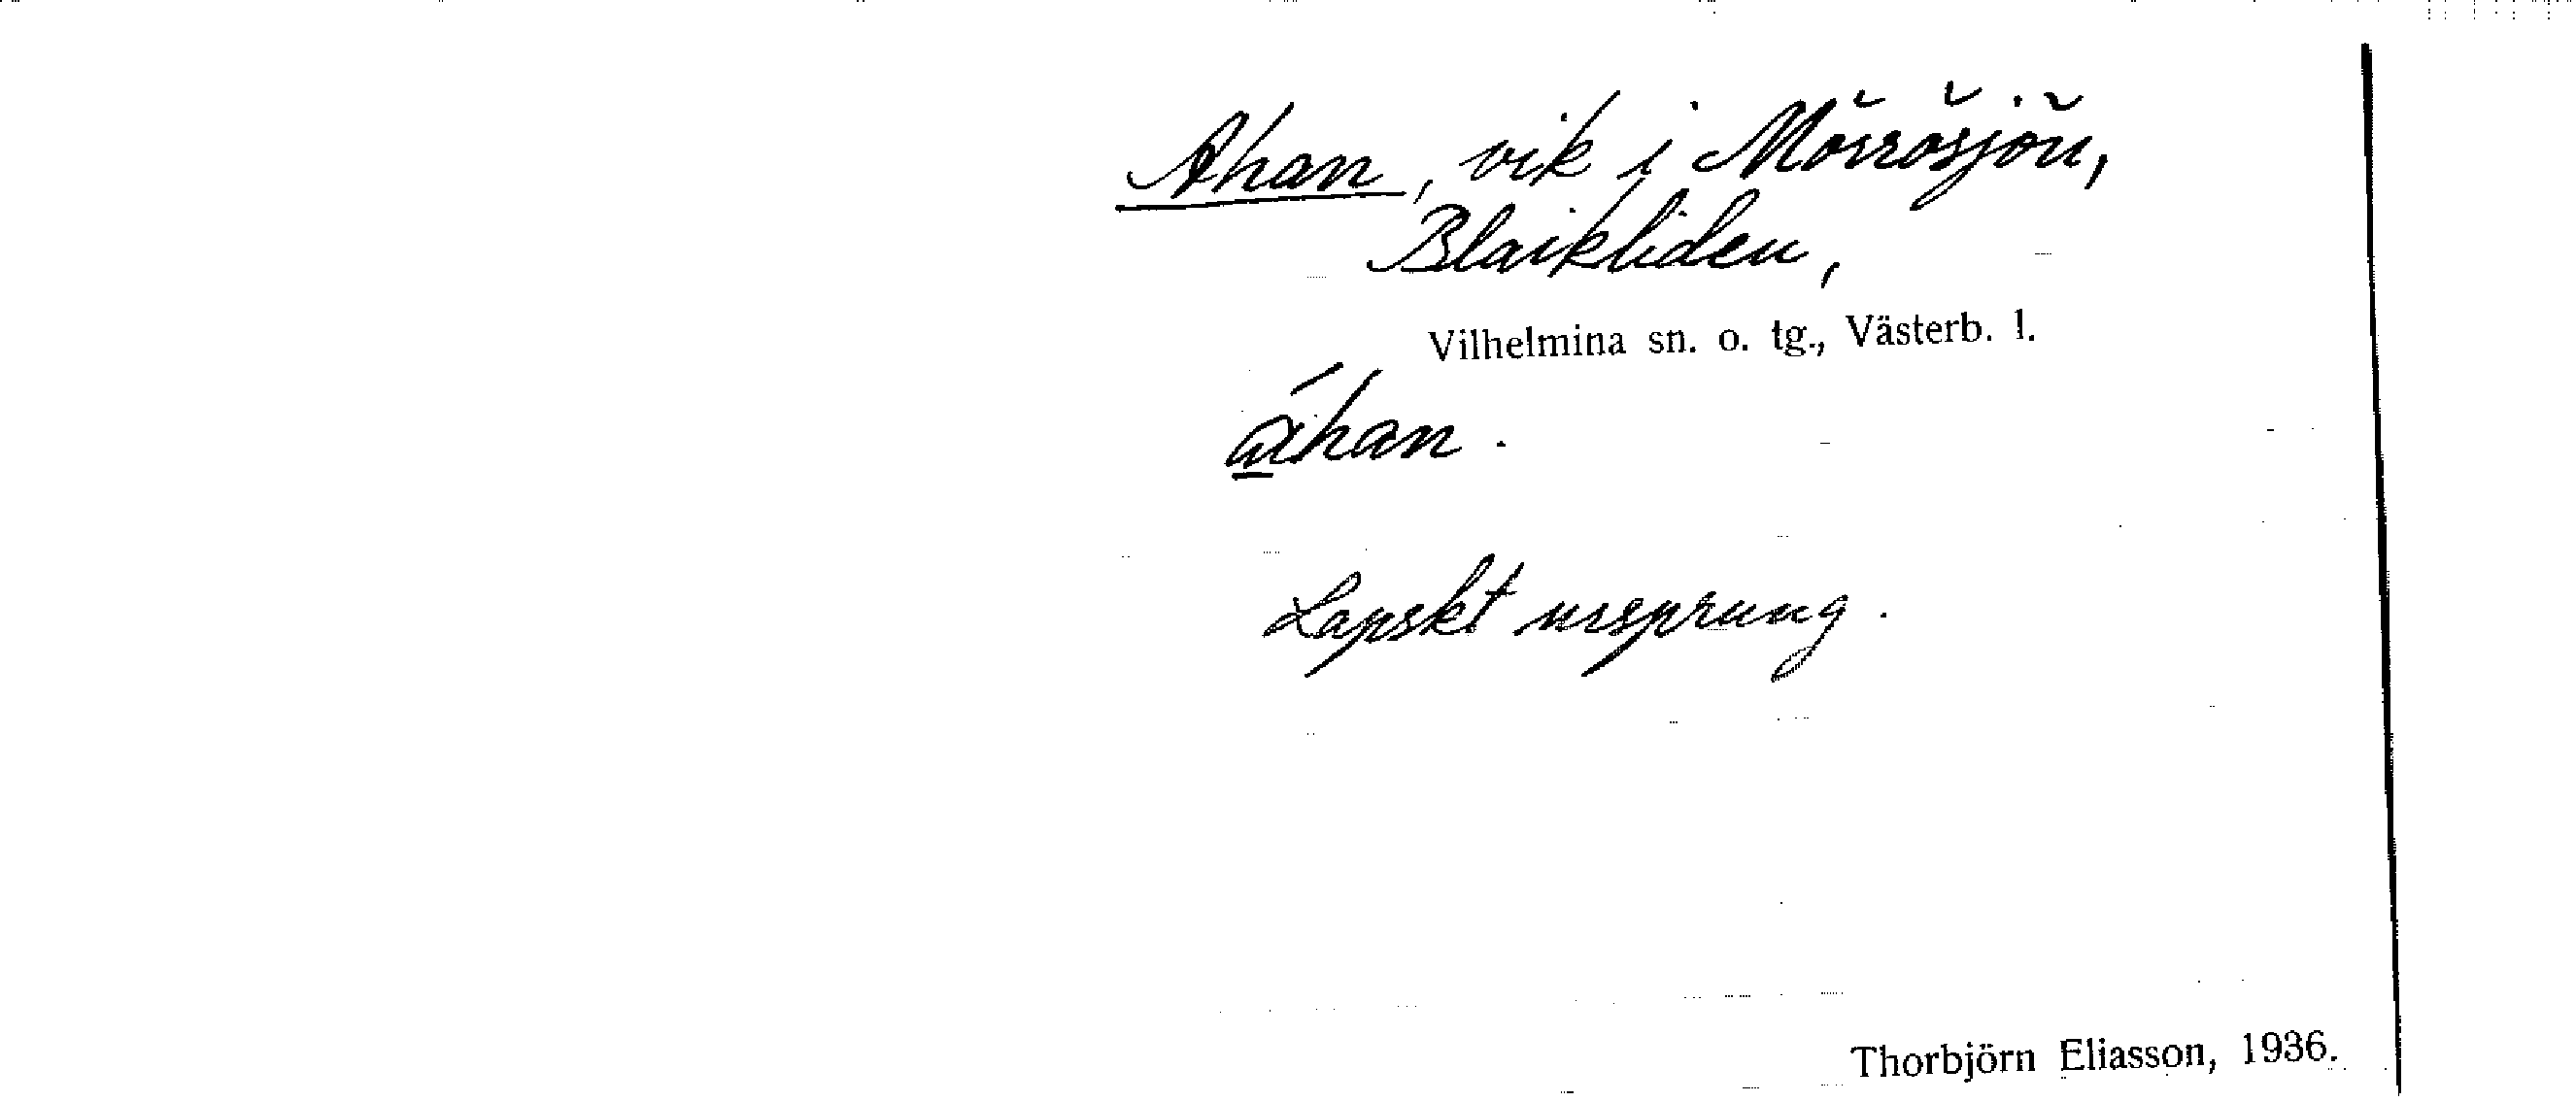 Ahan, vik i Mörrösjön,
Blaikliden,
Vilhelmina sn. o. tg., Västerb. l.
áhan.
Lapskt ursprung.
Thorbjörn Eliasson, 1936.